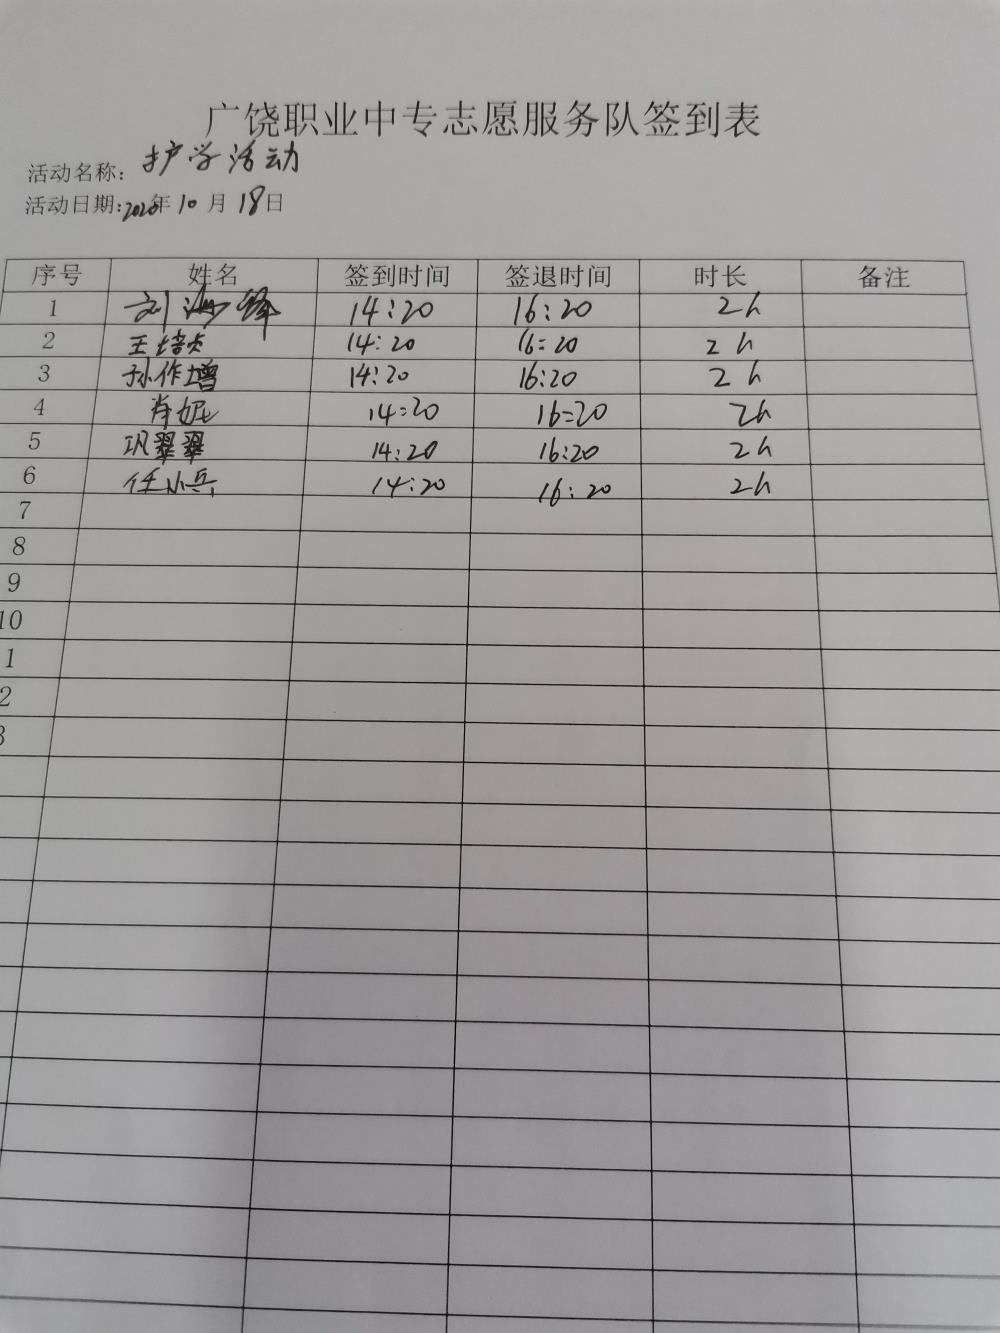 广饶职业中专志愿服务队签到表
活动名称: 护学活动
活动日期:2020年10月18日
序号 姓名 签到时间 签退时间 时长 备注
1 刘海锋 14:20 16:20 2h
2 王培贞 14:20 16:20 2h
3 孙作增 14:20 16:20 2h
4 肖妮 14:20 16:20 2h
5 巩翠翠 14:20 16:20 2h
6 任小兵 14:20 16:20 2h
7
8
9
10
1
2
3